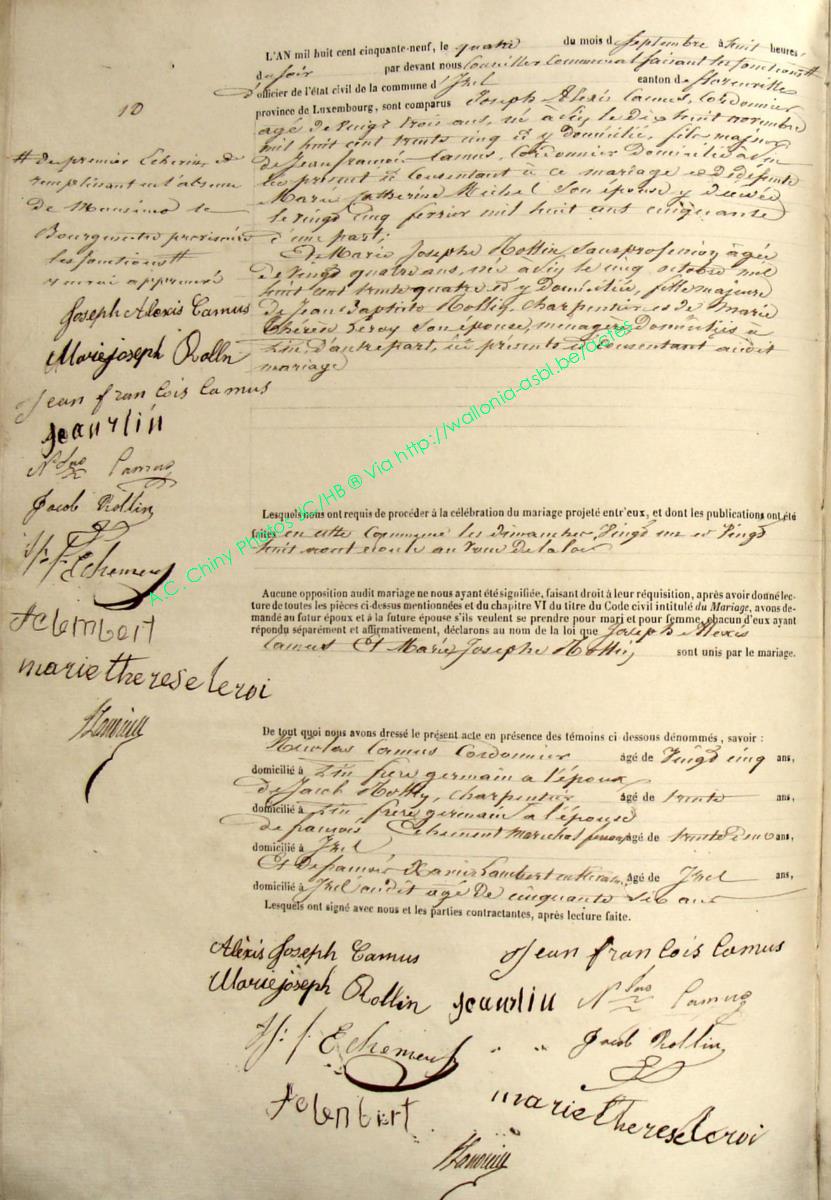 L'AN mil huit cent cinquante-neuf, le quatre du mois d septembre à huit heures,
du soir par devant nous Conseiller Communal faisant les fonctions #
d'officier de l'état civil de la commune d'Izel canton de florenville
province de Luxembourg, sont comparus Joseph Alexis Camus, Cordonnier
agé de vingt trois ans, né à le Dix huit novembre
mil huit cent trente cinq et y Domicilié, fils majeur
de Jean françois Camus, Cordonnier Domicilié à
présent et Consentant à ce mariage et de défunte
Marie Catherine Michel Son épouse y décédée
le vingt cinq fevrier mil huit cent cinquante
d'une part;
Et Marie Josephe Rollin Sans profession agée
de vingt quatre ans, née à le cinq octobre mil
huit cent trente quatre et y Domiciliée, fille majeure
de Jean Baptiste Rollin, Charpentier et de Marie
Thérèse Leroy Son épouse, menagère Domiciliés à
d'autre part, ici présents et Consentant audit
mariage
10
# du premier Echevin et
remplissant en l'absence
De Monsieur le
Bourgmestre
les fonctions #
approuvé
Joseph Alexis Camus
Marie joseph Rollin
Jean francois Camus
N. Camus
Jacob Rollin
marie therese leroi
Lesquels nous ont requis de procéder à la célébration du mariage projeté entr'eux, et dont les publications ont été
faites en cette Commune les dimanches Vingt un et Vingt
huit aout écoulé au vœu De la loi
Aucune opposition audit mariage ne nous ayant été signifiée, faisant droit à leur réquisition, après avoir donné lec-
ture de toutes les pièces ci-dessus mentionnées et du chapitre VI du titre du Code civil intitulé du Mariage, avons de-
mandé au futur époux et à la future épouse s'ils veulent se prendre pour mari et pour femme, chacun d'eux ayant
répondu séparément et affirmativement, déclarons au nom de la loi que Joseph Alexis
Camus Et Marie Josephe Rollin sont unis par le mariage.
De tout quoi nous avons dressé le présent acte en présence des témoins ci-dessous dénommés, savoir :
Nicolas Camus Cordonnier âgé de Vingt cinq ans,
domicilié à frère germain à l'époux
De Jacob Rollin, Charpentier âgé de trente ans,
domicilié à frère germain à l'épouse
De françois Echement Marechal ferrant âgé de trente ans,
domicilié à Izel
Et De françois Xavier Lambert âgé de Izel ans,
domicilié à Izel audit agé De cinquante six ans
Lesquels ont signé avec nous et les parties contractantes, après lecture faite.
Alexis Joseph Camus Jean francois Camus
Marie joseph Rollin N. Camus
Jacob Rollin
marie therese leroi
A.C. Chiny Photos JC/HB ® Via http://wallonia-asbl.be/actes